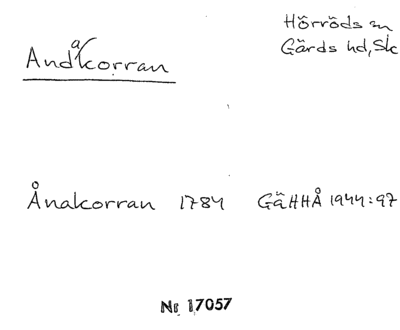 Hörröds sn
Andakorran
Gärds hd, Sk
Ånakorran 1784 GäHHÅ 1944:97
Nr 17057